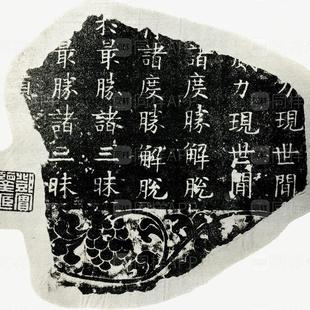 力現世間
威力現世間
諸度勝解脫
諸度勝解脫
最勝諸三昧
最勝諸三昧